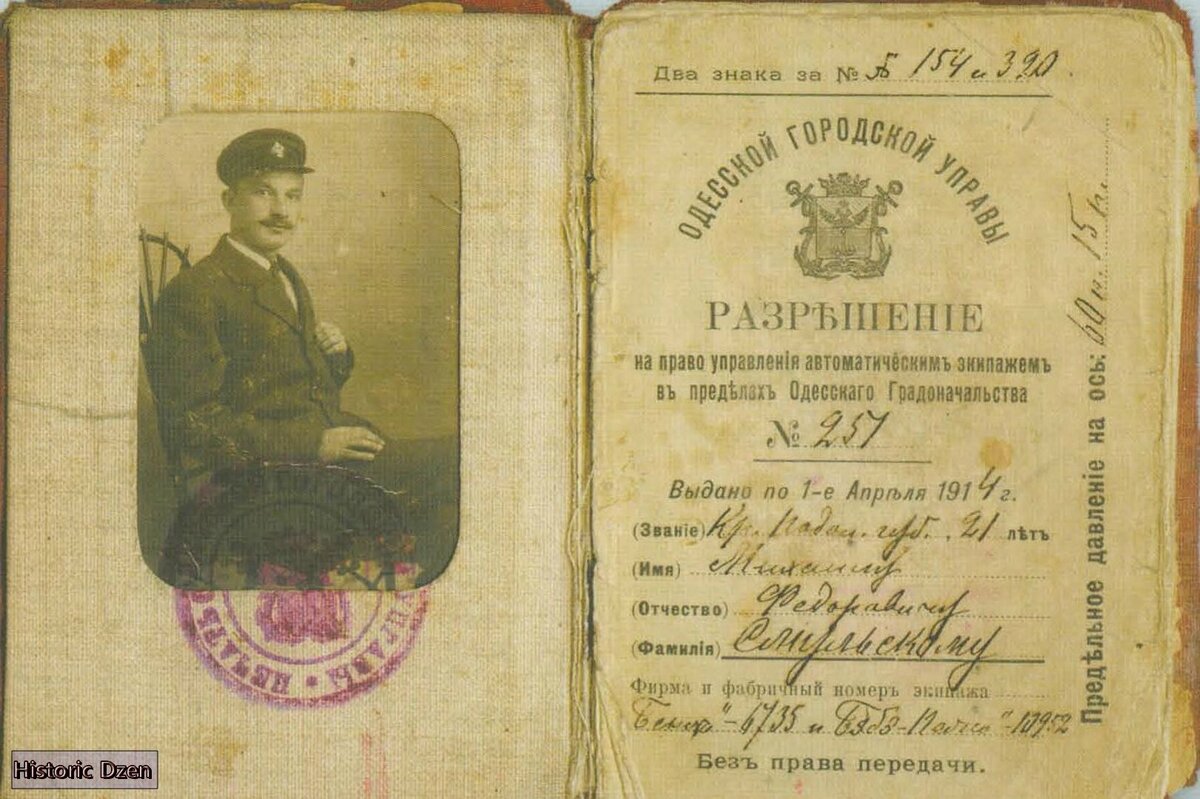 Два знака за № Б 154 и 390
ОДЕССКОЙ ГОРОДСКОЙ УПРАВЫ
РАЗРѢШЕНІЕ
на право управленія автоматическимъ экипажемъ
въ предѣлахъ Одесскаго Градоначальства
№ 251
Выдано по 1-е Апрѣля 1914 г.
(Званіе) Кр. Подол. губ. 21 лѣтъ
(Имя) Михаилу
(Отчество) Федоровичу
(Фамилія) Смульскому
Фирма и фабричный номеръ экипажа
Бенцъ"-6735 и
Безъ права передачи.
Предѣльное давленіе на ось: 60 п. 15
ПЕЧАТЬ УПРАВЫ
Historic Dzen